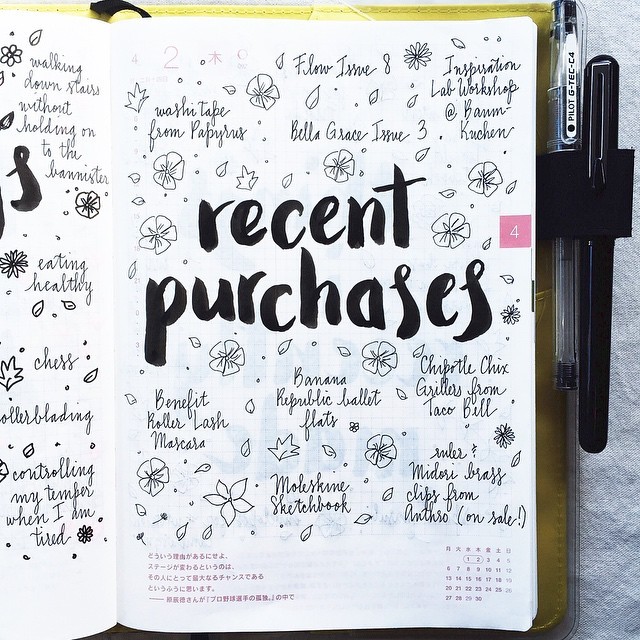 walking
down stairs
without
holding on
to the
bannister
eating
healthy
chess
ollerblading
controlling
my temper
when I am
tired
4
2 木
Flow Issue 8
Inspiration
Lab Workshop
@ Baum-
Kuchen
washi tape
from Papyrus
Bella Grace Issue 3
recent
purchases
4
Benefit
Roller Lash
Mascara
Banana
Republic ballet
flats
Chipotle Chix
Grillers from
Taco Bell
Moleskine
Sketchbook
ruler &
Midori brass
clips from
Anthro (on sale!)
どういう理由があるにせよ、
ステージが変わるというのは、
その人にとって最大なるチャンスである
というふうに思います。
—— 原辰徳さんが『プロ野球選手の孤独。』の中で
月 火 水 木 金 土 日
1 2 3 4 5
6 7 8 9 10 11 12
13 14 15 16 17 18 19
20 21 22 23 24 25 26
27 28 29 30
PILOT G-TEC-C4